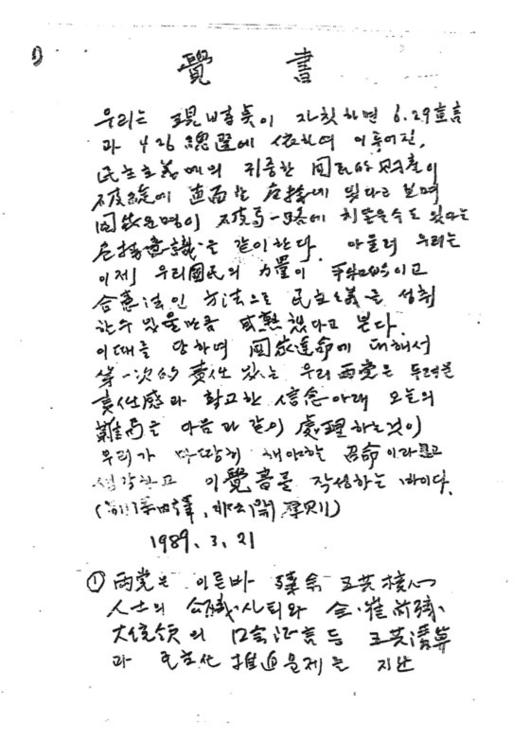 ①
覺 書
우리는 현시국이 자칫하면 6.29宣言
과 4.26 總選에 依하여 이루어진,
民主主義에의 귀중한 国民的 財産이
破綻에 直面할 危機에 있다고 보며
国家운명이 破局一路에 치달을수도 있다는
危機意識을 같이한다. 아울러 우리는
이제 우리国民의 力量이 平和的이고
合憲法인 方法으로 民主主義를 성취
할수 있을만큼 成熟했다고 본다.
이때를 당하여 国家運命에 대해서
第一次的 責任 있는 우리 両党은 투철한
責任感과 확고한 信念아래 오늘의
難局을 다음과 같이 處理하는것이
우리가 마땅히 해야하는 召命이라고
생각하고 이 覺書를 작성하는 바이다.
1989. 3. 21
① 両党은 이른바 殘余 五共核心
人士의 公職사퇴와 全·崔 前職
大統領의 国会证言등 五共淸算
과 民主化 推進문제는 지난